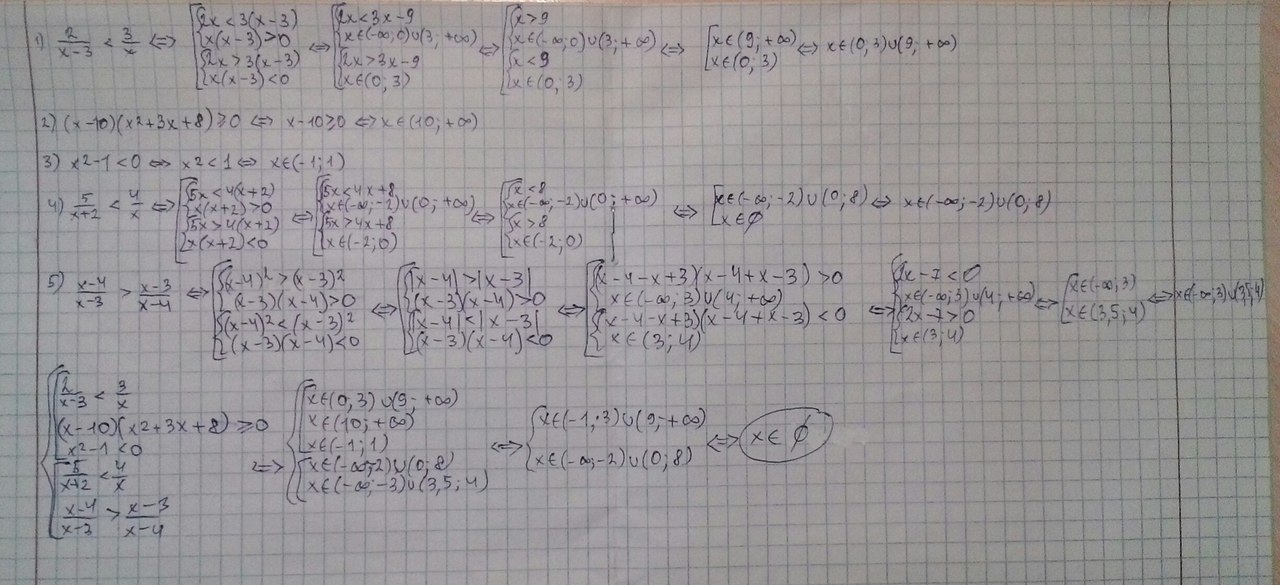 1) 2/(x-3) < 3/x ⇔ [{2x<3(x-3) {x(x-3)>0 {2x>3(x-3) {x(x-3)<0 ⇔ [{2x<3x-9 {x∈(-∞;0)∪(3;+∞) {2x>3x-9 {x∈(0;3) ⇔ [{x>9 {x∈(-∞;0)∪(3;+∞) {x<9 {x∈(0;3) ⇔ [x∈(9;+∞) x∈(0;3) ⇔ x∈(0;3)∪(9;+∞)
2) (x-10)(x2+3x+8)≥0 ⇔ x-10≥0 ⇔ x∈(10;+∞)
3) x2-1<0 ⇔ x2<1 ⇔ x∈(-1;1)
4) 5/(x+2) < 4/x ⇔ [{5x<4(x+2) {x(x+2)>0 {5x>4(x+2) {x(x+2)<0 ⇔ [{5x<4x+8 {x∈(-∞;-2)∪(0;+∞) {5x>4x+8 {x∈(-2;0) ⇔ [{x<8 {x∈(-∞;-2)∪(0;+∞) {x>8 {x∈(-2;0) ⇔ [x∈(-∞;-2)∪(0;8) x∈∅ ⇔ x∈(-∞;-2)∪(0;8)
5) (x-4)/(x-3) > (x-3)/(x-4) ⇔ [{(x-4)²>(x-3)² {(x-3)(x-4)>0 {(x-4)²<(x-3)² {(x-3)(x-4)<0 ⇔ [{|x-4|>|x-3| {(x-3)(x-4)>0 {|x-4|<|x-3| {(x-3)(x-4)<0 ⇔ [{(x-4-x+3)(x-4+x-3)>0 {x∈(-∞;3)∪(4;+∞) {(x-4-x+3)(x-4+x-3)<0 {x∈(3;4) ⇔ [{2x-7<0 {x∈(-∞;3)∪(4;+∞) {2x-7>0 {x∈(3;4) ⇔ [x∈(-∞;3) x∈(3,5;4) ⇔ x∈(-∞;3)∪(3,5;4)
{[2/(x-3) < 3/x
(x-10)(x2+3x+8)≥0
x2-1<0
[5/(x+2) < 4/x
(x-4)/(x-3) > (x-3)/(x-4)
⇔ {[x∈(0;3)∪(9;+∞)
x∈(10;+∞)
x∈(-1;1)
[x∈(-∞;-2)∪(0;8)
x∈(-∞;-3)∪(3,5;4)
⇔ {x∈(-1;3)∪(9;+∞)
x∈(-∞;-2)∪(0;8)
⇔ x∈∅